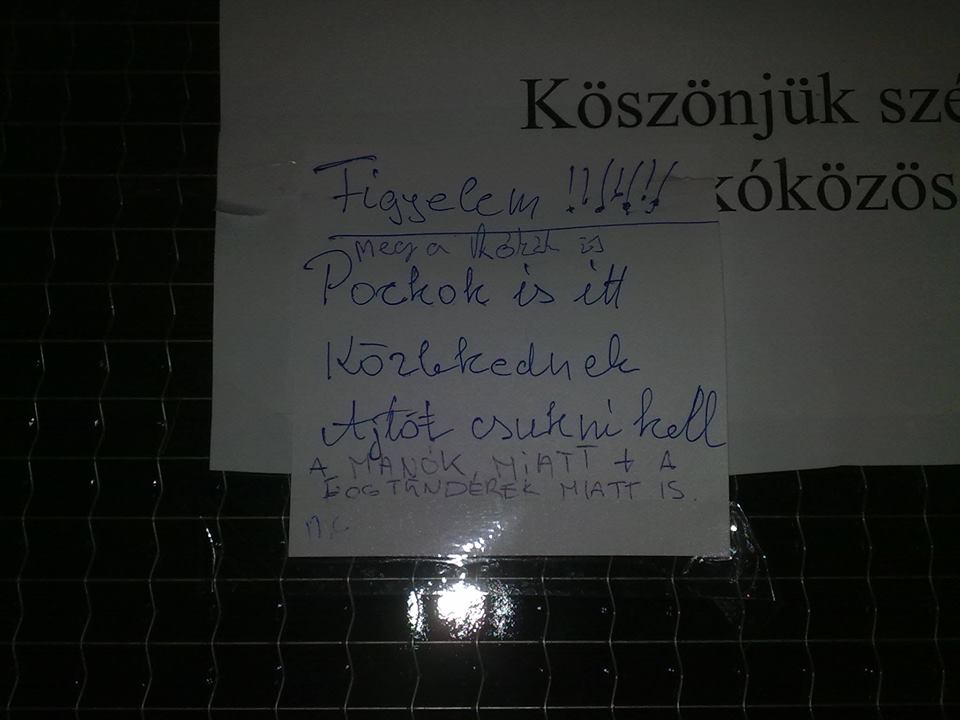 Köszönjük szé
kóközös
Figyelem !!!!!!
meg a is
Pockok is itt
Közlekednek
Ajtót csukni kell
A MANÓK MIATT + A
FOGTÜNDÉREK MIATT IS.